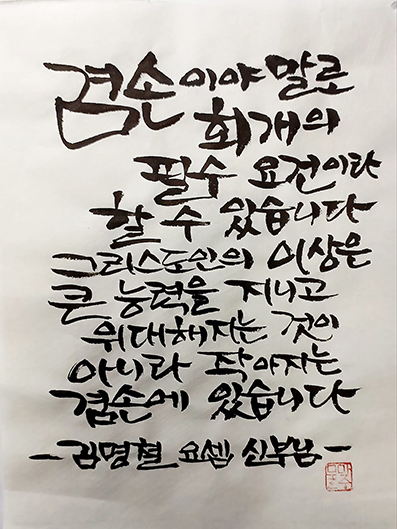 겸손이야말로
회개의
필수 요건이라
할 수 있습니다
그리스도인의 이상은
큰 능력을 지니고
위대해지는 것이
아니라 작아지는
겸손에 있습니다
-김명현 요셉 신부님-